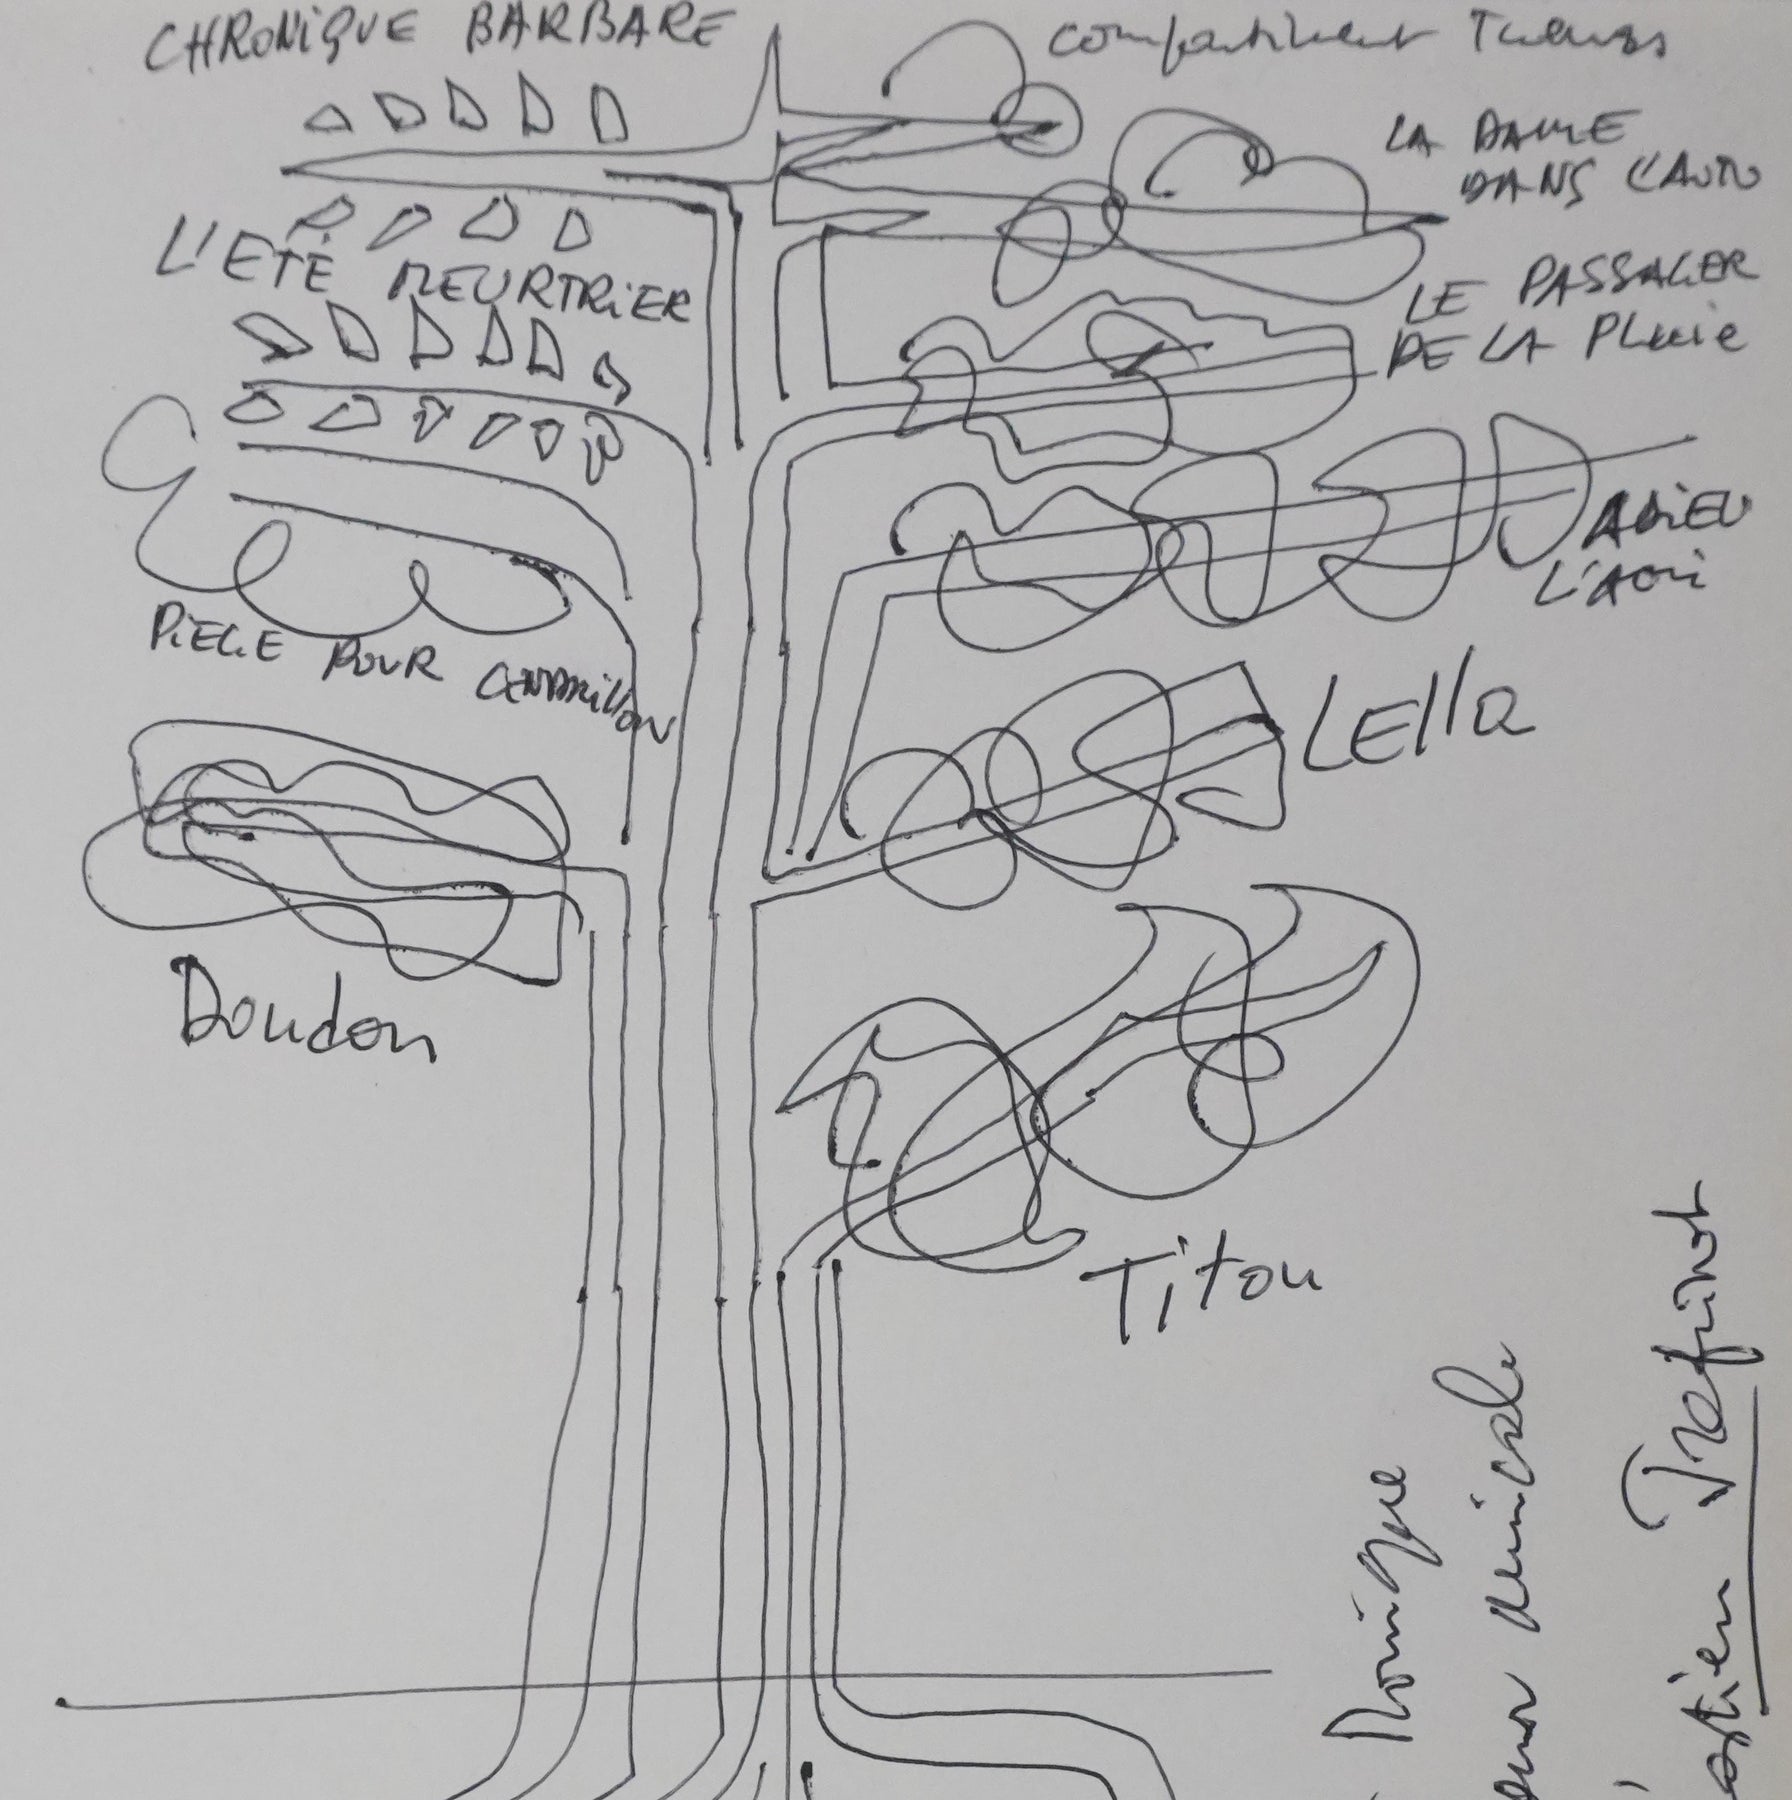 CHRONIQUE BARBARE
compartiment Tueurs
LA DAME
DANS L'AUTO
L'ETÉ MEURTRIER
LE PASSAGER
DE LA PLUIE
ADIEU
L'AMI
PIEGE POUR CENDRILLON
LElla
Doudou
Titou
Monique
amicale